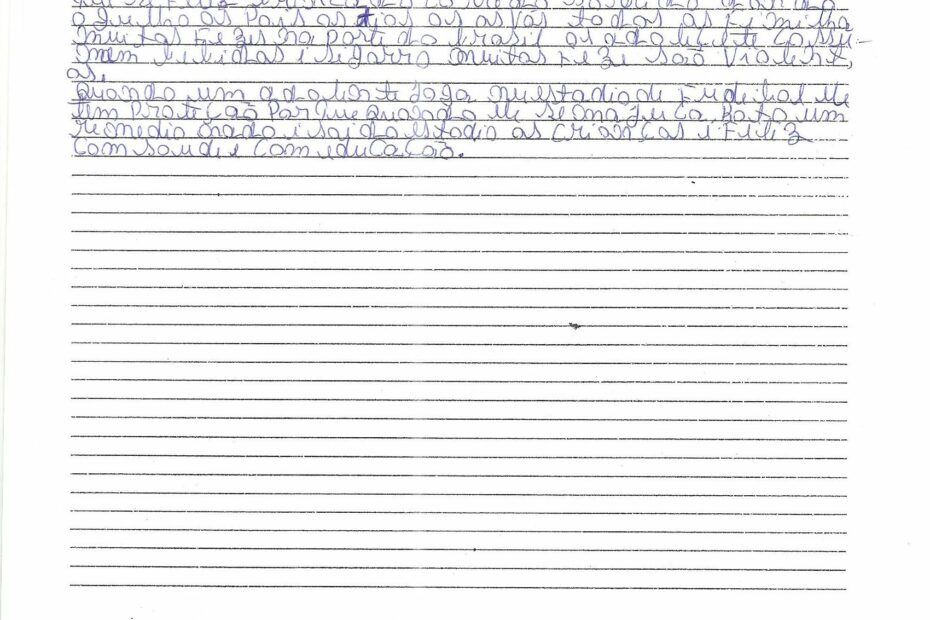 os Pais os tios os as Vós todos as Femilha
muitas Fezes na parti do brasil os adolecete Cossu-
mem bebidas i sigarro muitas Feze são Violent,
as.
Quando um adolente joga nu estadio de Futibol ele
tem Proteção Porque quando ele se maxuca Bota um
remedio nado i sai do estadio as Crianças i Feliz
Com Saudi e Com educação.